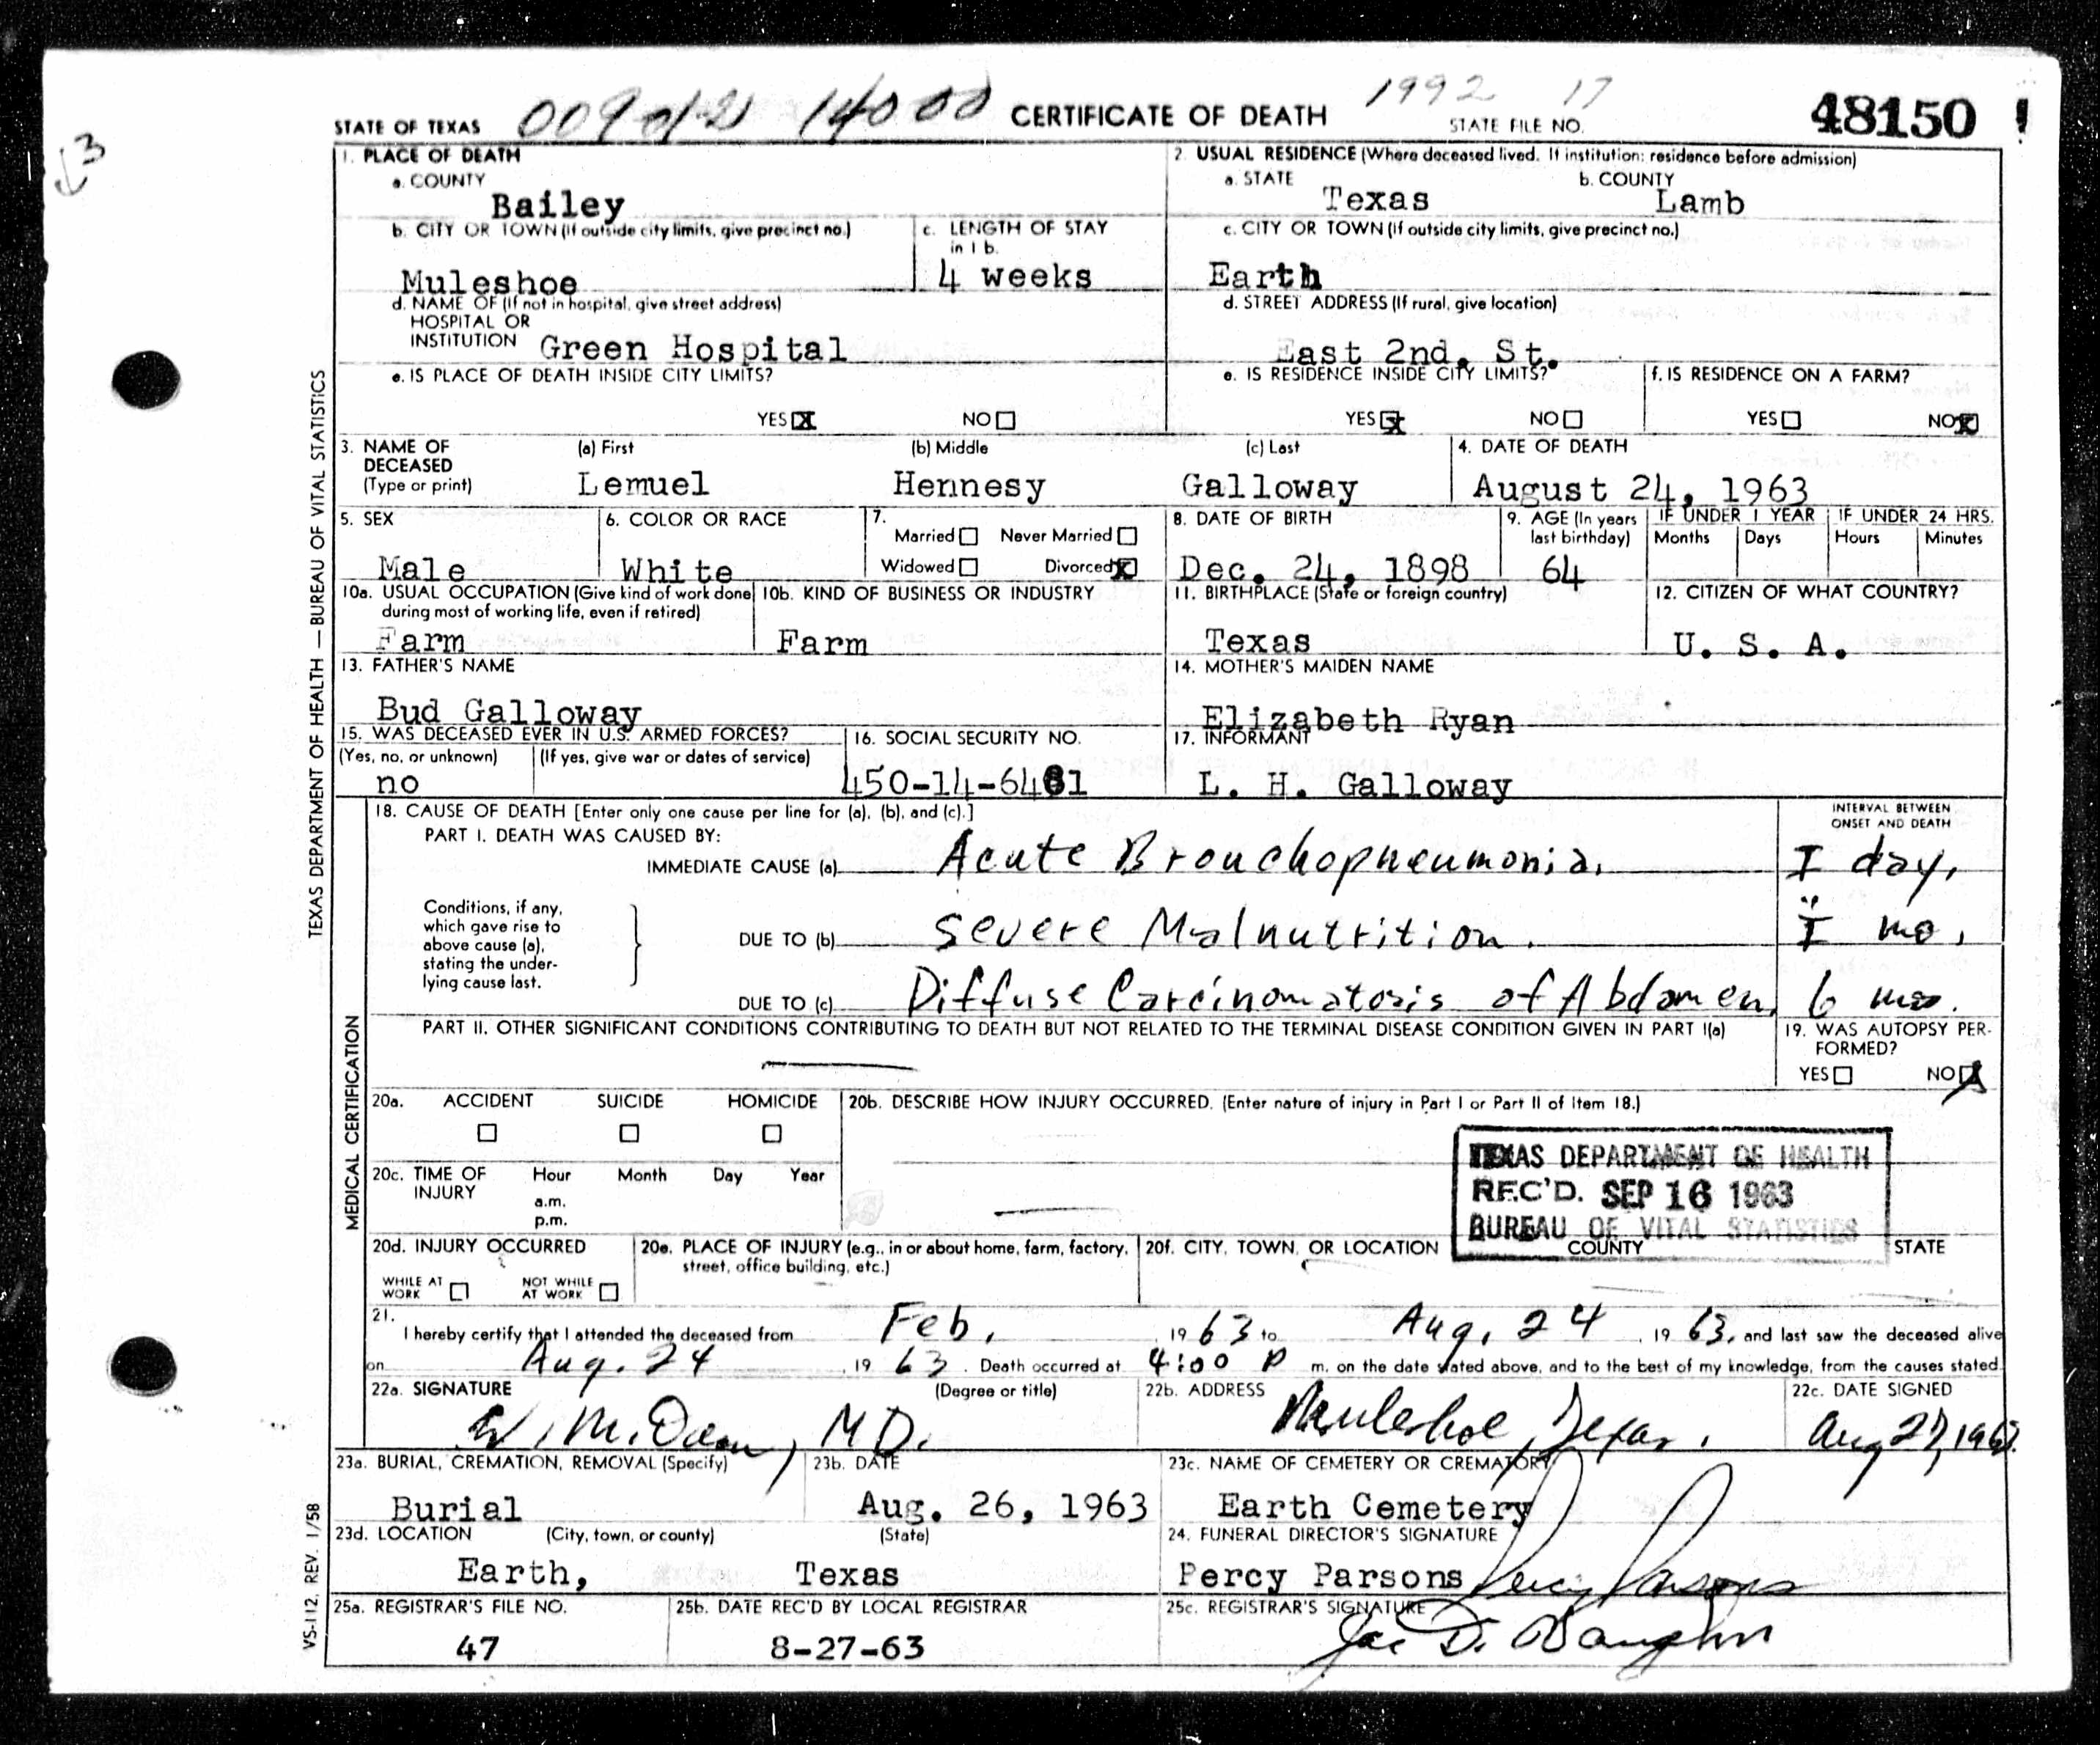 STATE OF TEXAS
14000
CERTIFICATE OF DEATH
1992 17
STATE FILE NO.
48150
3
1. PLACE OF DEATH
a. COUNTY
Bailey
b. CITY OR TOWN (If outside city limits, give precinct no.)
Muleshoe
c. LENGTH OF STAY
in 1 b.
4 weeks
d. NAME OF (If not in hospital, give street address)
HOSPITAL OR
INSTITUTION Green Hospital
e. IS PLACE OF DEATH INSIDE CITY LIMITS?
YES X NO
2. USUAL RESIDENCE (Where deceased lived. If institution: residence before admission)
a. STATE
Texas
b. COUNTY
Lamb
c. CITY OR TOWN (If outside city limits, give precinct no.)
Earth
d. STREET ADDRESS (If rural, give location)
East 2nd. St.
e. IS RESIDENCE INSIDE CITY LIMITS?
YES X NO
f. IS RESIDENCE ON A FARM?
YES NO X
3. NAME OF
DECEASED
(Type or print)
(a) First
Lemuel
(b) Middle
Hennesy
(c) Last
Galloway
4. DATE OF DEATH
August 24, 1963
5. SEX
Male
6. COLOR OR RACE
White
7.
Married Never Married
Widowed Divorced X
8. DATE OF BIRTH
Dec. 24, 1898
9. AGE (In years
last birthday)
64
IF UNDER 1 YEAR
Months Days
IF UNDER 24 HRS.
Hours Minutes
10a. USUAL OCCUPATION (Give kind of work done
during most of working life, even if retired)
Farm
10b. KIND OF BUSINESS OR INDUSTRY
Farm
11. BIRTHPLACE (State or foreign country)
Texas
12. CITIZEN OF WHAT COUNTRY?
U. S. A.
13. FATHER'S NAME
Bud Galloway
14. MOTHER'S MAIDEN NAME
Elizabeth Ryan
15. WAS DECEASED EVER IN U.S. ARMED FORCES?
(Yes, no, or unknown) (If yes, give war or dates of service)
no
16. SOCIAL SECURITY NO.
17. INFORMANT
L. H. Galloway
18. CAUSE OF DEATH [Enter only one cause per line for (a), (b), and (c).]
PART I. DEATH WAS CAUSED BY:
INTERVAL BETWEEN
ONSET AND DEATH
IMMEDIATE CAUSE (a) Acute Bronchopneumonia. I day,
Conditions, if any,
which gave rise to
above cause (a),
stating the under-
lying cause last.
DUE TO (b) Severe Malnutrition. I mo,
DUE TO (c) Diffuse Carcinomatosis of Abdomen, 6 mos.
PART II. OTHER SIGNIFICANT CONDITIONS CONTRIBUTING TO DEATH BUT NOT RELATED TO THE TERMINAL DISEASE CONDITION GIVEN IN PART I(a)
19. WAS AUTOPSY PER-
FORMED?
YES NO X
20a. ACCIDENT SUICIDE HOMICIDE
20b. DESCRIBE HOW INJURY OCCURRED. (Enter nature of injury in Part I or Part II of Item 18.)
20c. TIME OF
INJURY
Hour Month Day Year
a.m.
p.m.
TEXAS DEPARTMENT OF HEALTH
REC'D. SEP 16 1963
BUREAU OF VITAL STATISTICS
20d. INJURY OCCURRED
WHILE AT
WORK
NOT WHILE
AT WORK
20e. PLACE OF INJURY (e.g., in or about home, farm, factory,
street, office building, etc.)
20f. CITY, TOWN, OR LOCATION COUNTY STATE
21.
I hereby certify that I attended the deceased from Feb. 19 63 to Aug. 24, 19 63, and last saw the deceased alive
on Aug. 24, 19 63. Death occurred at 4:00 P m. on the date stated above, and to the best of my knowledge, from the causes stated.
22a. SIGNATURE (Degree or title)
MD.
22b. ADDRESS
Muleshoe, Texas.
22c. DATE SIGNED
Aug 27, 1963
23a. BURIAL, CREMATION, REMOVAL (Specify)
Burial
23b. DATE
Aug. 26, 1963
23c. NAME OF CEMETERY OR CREMATORY
Earth Cemetery
23d. LOCATION (City, town, or county) (State)
Earth, Texas
24. FUNERAL DIRECTOR'S SIGNATURE
Percy Parsons Percy Parsons
25a. REGISTRAR'S FILE NO.
47
25b. DATE REC'D BY LOCAL REGISTRAR
8-27-63
25c. REGISTRAR'S SIGNATURE
TEXAS DEPARTMENT OF HEALTH — BUREAU OF VITAL STATISTICS
MEDICAL CERTIFICATION
VS-112, REV. 1/58